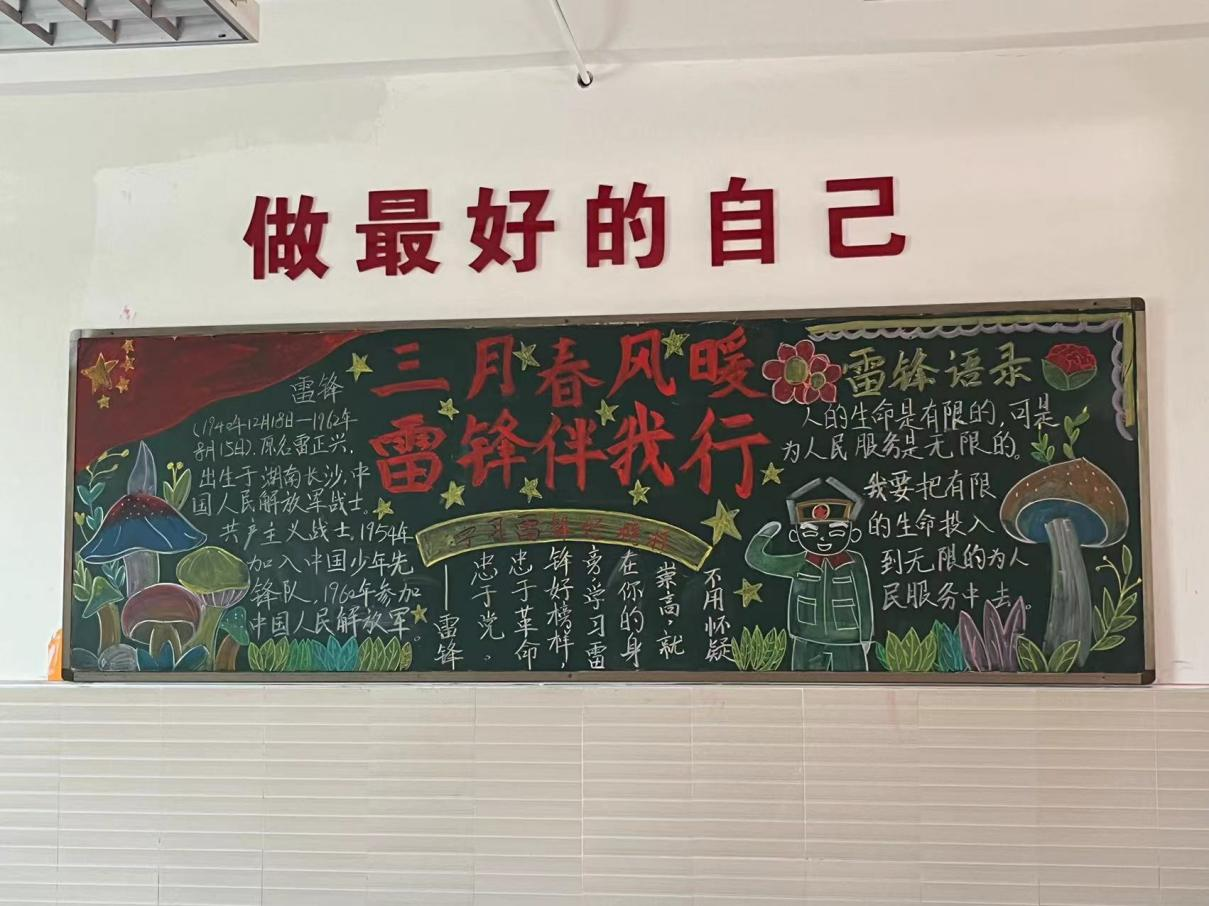 做最好的自己
三月春风暖
雷锋伴我行
雷锋
(1940年12月18日—1962年
8月15日).原名雷正兴,
出生于湖南长沙,中
国人民解放军战士。
共产主义战士,1954年
加入中国少年先
锋队,1960年参加
中国人民解放军。
学习雷锋好榜样
不用怀疑
崇高,就
在你的身
旁,学习雷
锋好榜样,
忠于革命
忠于党。
——雷锋
雷锋语录
人的生命是有限的,可是
为人民服务是无限的。
我要把有限
的生命投入
到无限的为人
民服务中去。